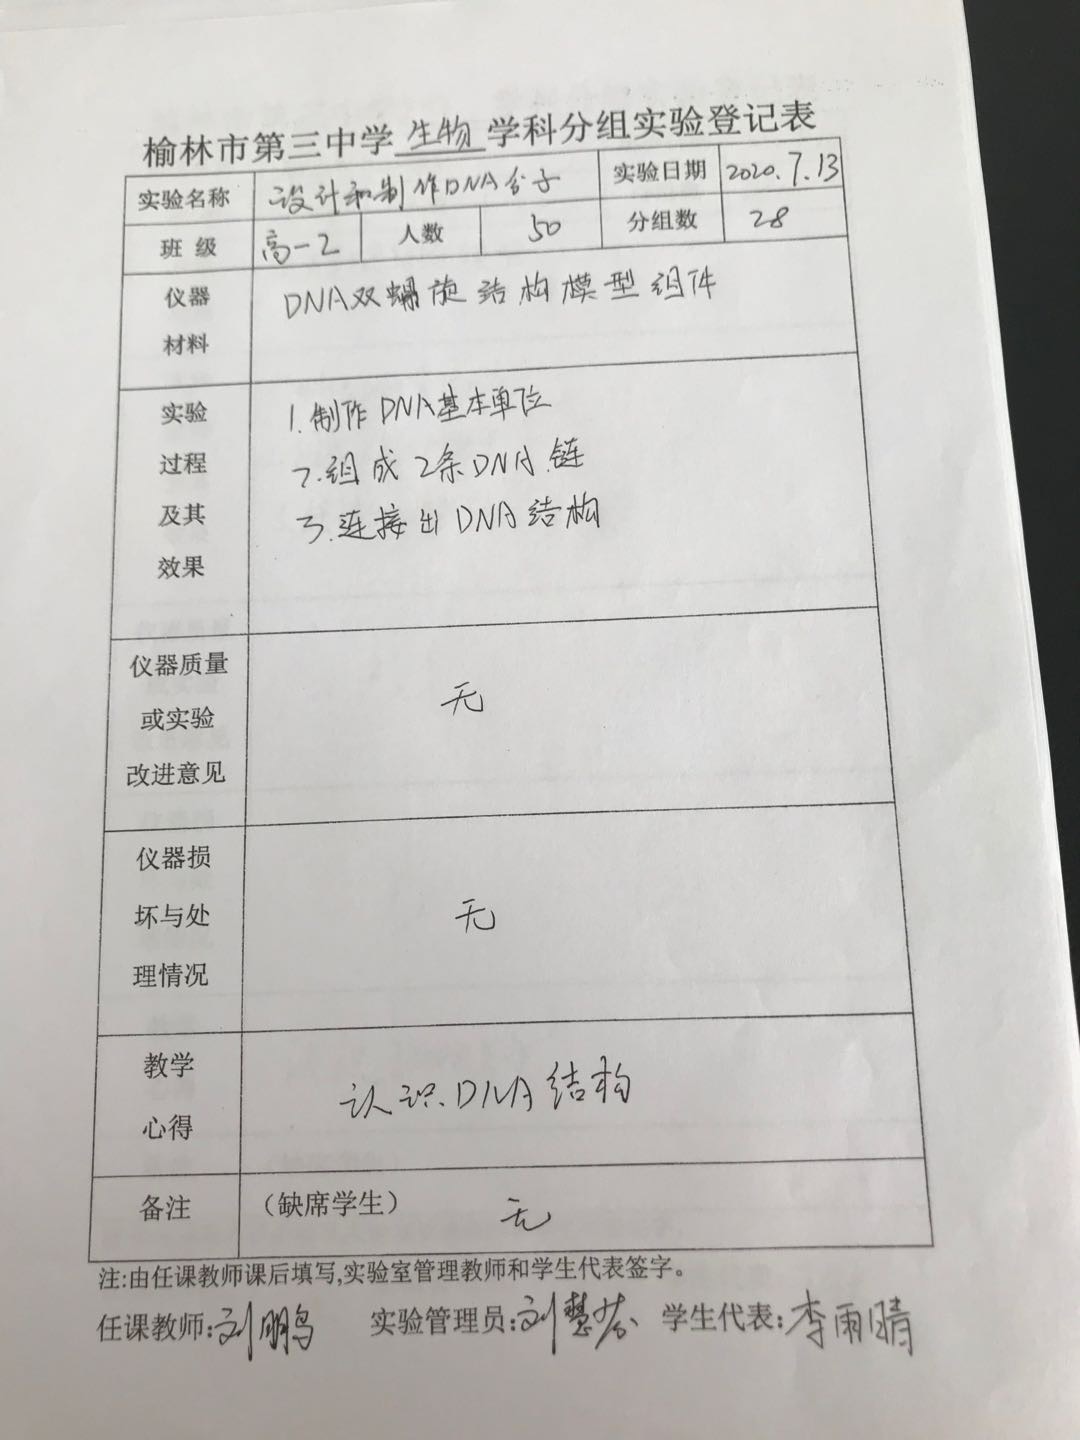 榆林市第三中学生物学科分组实验登记表
实验名称 设计和制作DNA分子 实验日期 2020.7.13
班级 高一2 人数 50 分组数 28
仪器 DNA双螺旋结构模型组件
材料
实验 1.制作DNA基本单位
过程 2.组成2条DNA链
及其 3.连接出DNA结构
效果
仪器质量
或实验 无
改进意见
仪器损
坏与处 无
理情况
教学 认识DNA结构
心得
备注 (缺席学生) 无
注:由任课教师课后填写,实验室管理教师和学生代表签字。
任课教师:刘鹏 实验管理员:刘慧芬 学生代表:李雨晴